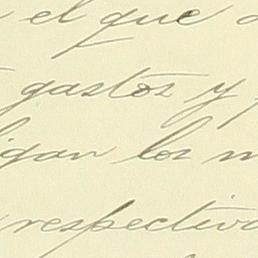 el que
gastos y
igan los
respectiv